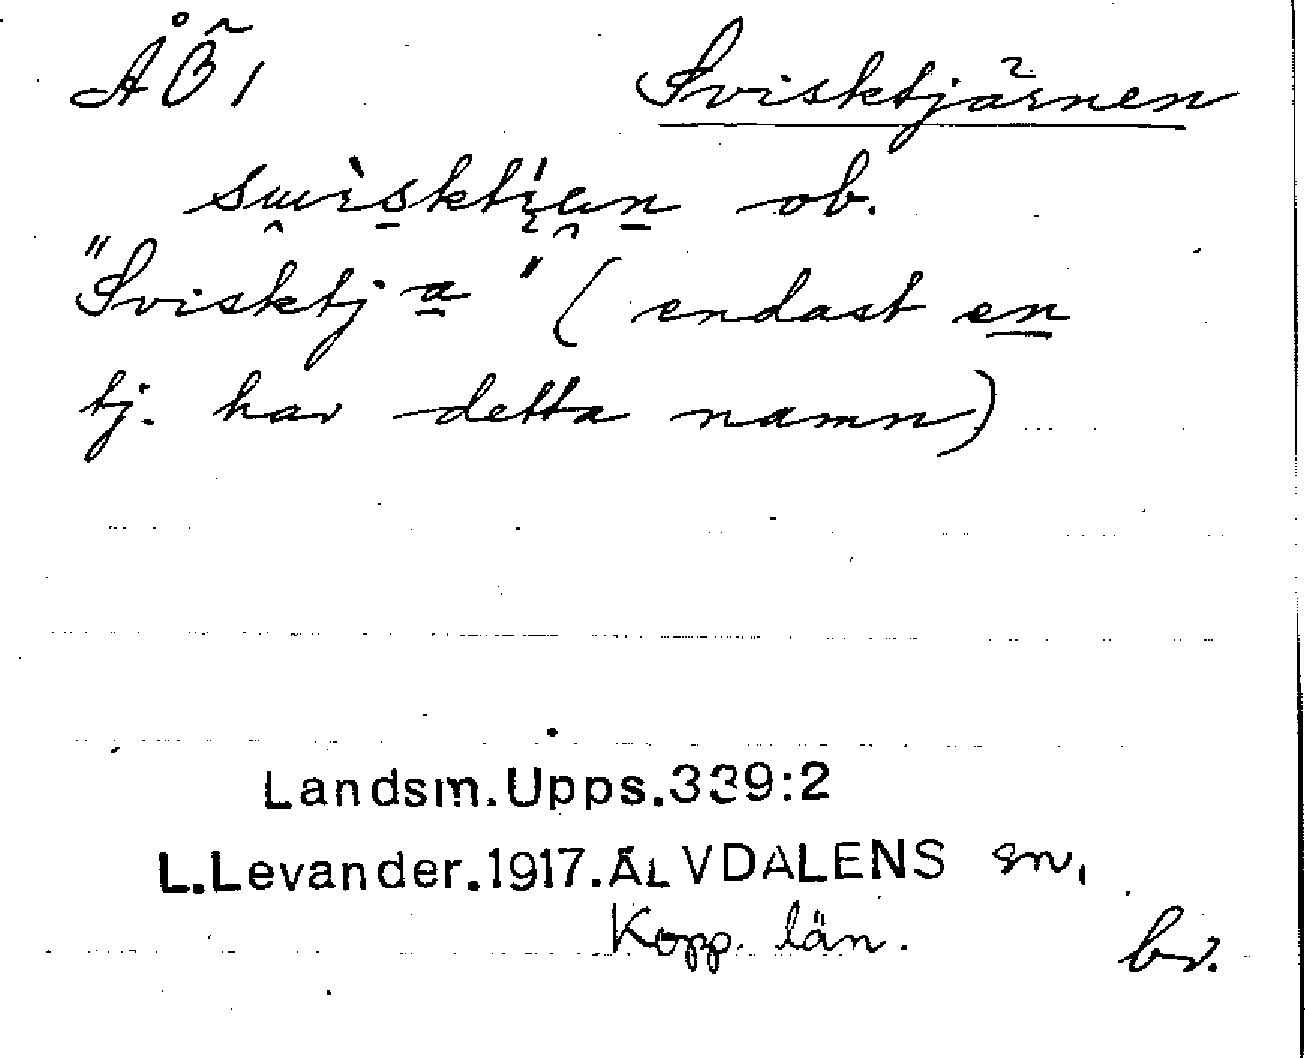 ÅÖ1 Svisktjärnen
swisktjan ob.
"Svisktj a" (endast en
tj. har detta namn)
Landsm.Upps.339:2
L.Levander.1917.ÄLVDALENS sn,
Kopp. län.
bv.